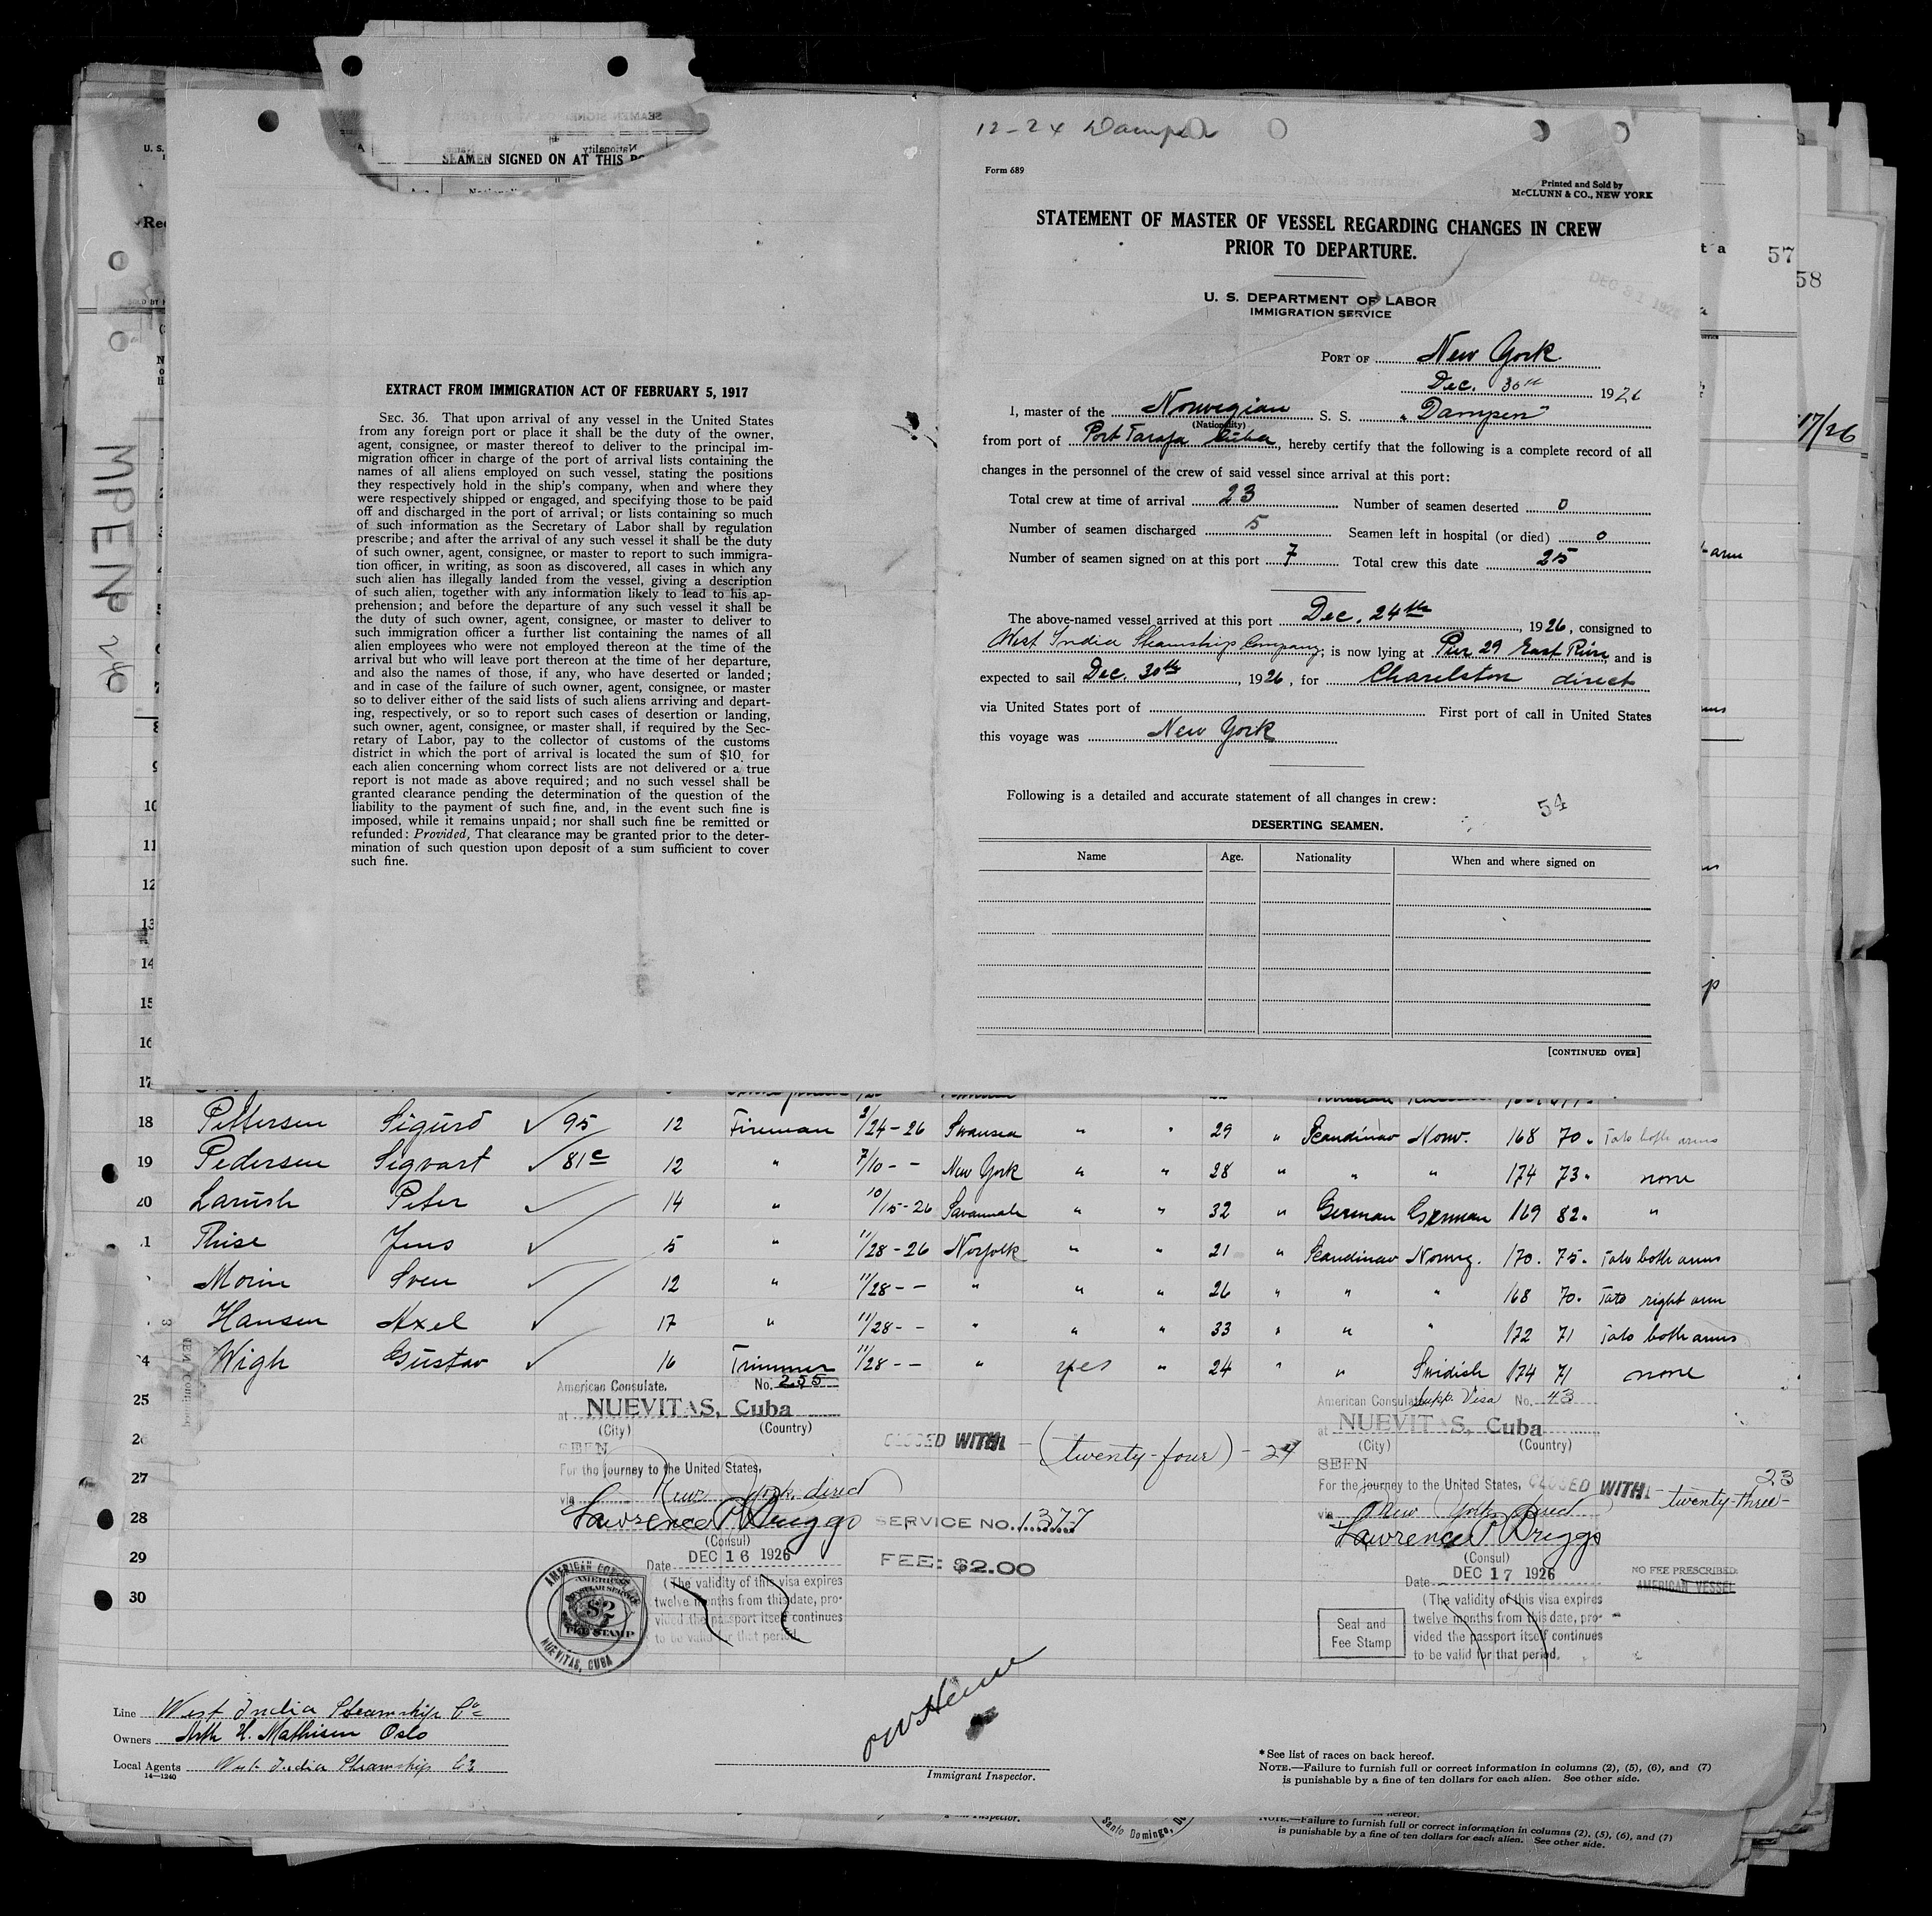 SEAMEN SIGNED ON AT THIS
EXTRACT FROM IMMIGRATION ACT OF FEBRUARY 5, 1917
SEC. 36. That upon arrival of any vessel in the United States
from any foreign port or place it shall be the duty of the owner,
agent, consignee, or master thereof to deliver to the principal im-
migration officer in charge of the port of arrival lists containing the
names of all aliens employed on such vessel, stating the positions
they respectively hold in the ship's company, when and where they
were respectively shipped or engaged, and specifying those to be paid
off and discharged in the port of arrival; or lists containing so much
of such information as the Secretary of Labor shall by regulation
prescribe; and after the arrival of any such vessel it shall be the duty
of such owner, agent, consignee, or master to report to such immigra-
tion officer, in writing, as soon as discovered, all cases in which any
such alien has illegally landed from the vessel, giving a description
of such alien, together with any information likely to lead to his ap-
prehension; and before the departure of any such vessel it shall be
the duty of such owner, agent, consignee, or master to deliver to
such immigration officer a further list containing the names of all
alien employees who were not employed thereon at the time of the
arrival but who will leave port thereon at the time of her departure,
and also the names of those, if any, who have deserted or landed;
and in case of the failure of such owner, agent, consignee, or master
so to deliver either of the said lists of such aliens arriving and depart-
ing, respectively, or so to report such cases of desertion or landing,
such owner, agent, consignee, or master shall, if required by the Sec-
retary of Labor, pay to the collector of customs of the customs
district in which the port of arrival is located the sum of $10 for
each alien concerning whom correct lists are not delivered or a true
report is not made as above required; and no such vessel shall be
granted clearance pending the determination of the question of the
liability to the payment of such fine, and, in the event such fine is
imposed, while it remains unpaid; nor shall such fine be remitted or
refunded: Provided, That clearance may be granted prior to the deter-
mination of such question upon deposit of a sum sufficient to cover
such fine.
MPEN
12-24 Dampen
Form 689
Printed and Sold by
McCLUNN & CO., NEW YORK
STATEMENT OF MASTER OF VESSEL REGARDING CHANGES IN CREW
PRIOR TO DEPARTURE.
U. S. DEPARTMENT OF LABOR
IMMIGRATION SERVICE
DEC 31 1926
PORT OF New York
Dec. 30th 1926
I, master of the Norwegian S. S. "Dampen"
(Nationality)
from port of Port Tarafa Cuba, hereby certify that the following is a complete record of all
changes in the personnel of the crew of said vessel since arrival at this port:
Total crew at time of arrival 23 Number of seamen deserted 0
Number of seamen discharged 5 Seamen left in hospital (or died) 0
Number of seamen signed on at this port 7 Total crew this date 25
The above-named vessel arrived at this port Dec. 24th, 1926, consigned to
West India Steamship Company, is now lying at Pier 29 East River and is
expected to sail Dec. 30th, 1926, for Charelston direct
via United States port of First port of call in United States
this voyage was New York
Following is a detailed and accurate statement of all changes in crew:
54
DESERTING SEAMEN.
Name Age. Nationality When and where signed on
[CONTINUED OVER]
57
58
17/26
10
11
12
13
14
15
16
17
18 Pettersen Sigurd ✓ 95 12 Fireman 2/24-26 Swansea " " 29 " Scandinav Norw. 168 70 " Tato both arms
19 Pedersen Sigvart ✓ 81c 12 " 7/10 - - New York " " 28 " " " 174 73 " none
20 Larush Peter ✓ 14 " 10/15-26 Savannah " " 32 " German German 169 82 " "
Thise Jens ✓ 5 " 11/28-26 Norfolk " " 21 " Scandinav Norweg. 170. 75 " Tato both arms
Morin Sven ✓ 12 " 11/28 - - " " " 26 " " " 168 70 " Tato right arm
Hansen Axel ✓ 17 " 11/28 - - " " " 33 " " " 172 71 Tato both arms
24 Wigh Gustav ✓ 16 Trimmer 11/28 - - " yes " 24 " " Swidish 174 71 none
25
26
27
28
29
30
American Consulate. No. 255
at NUEVITAS, Cuba
(City) (Country)
SEEN
For the journey to the United States,
via New York direct
Lawrence P Briggs
(Consul)
Date DEC 16 1926
(The validity of this visa expires
twelve months from this date, pro-
vided the passport itself continues
to be valid for that period.
AMERICAN CONSULAR SERVICE
$2
FEE STAMP
NUEVITAS, CUBA
CLOSED WITH - (twenty-four) - 24
SERVICE NO. 1377
FEE: $2.00
American Consulate Supp. Visa No. 43
at NUEVITAS, Cuba
(City) (Country)
SEEN
For the journey to the United States, CLOSED WITH - twenty-three - 23
via New York direct
Lawrence P Briggs
(Consul)
Date DEC 17 1926
(The validity of this visa expires
twelve months from this date, pro-
vided the passport itself continues
to be valid for that period.
Seal and
Fee Stamp
NO FEE PRESCRIBED:
AMERICAN VESSEL
Line West India Steamship Co
Owners Arth H. Mathisen Oslo
Local Agents West India Steamship Co
14—1240
Immigrant Inspector.
* See list of races on back hereof.
NOTE.—Failure to furnish full or correct information in columns (2), (5), (6), and (7)
is punishable by a fine of ten dollars for each alien. See other side.
Santo Domingo,
NOTE.—Failure to furnish full or correct information in columns (2), (5), (6), and (7)
is punishable by a fine of ten dollars for each alien. See other side.